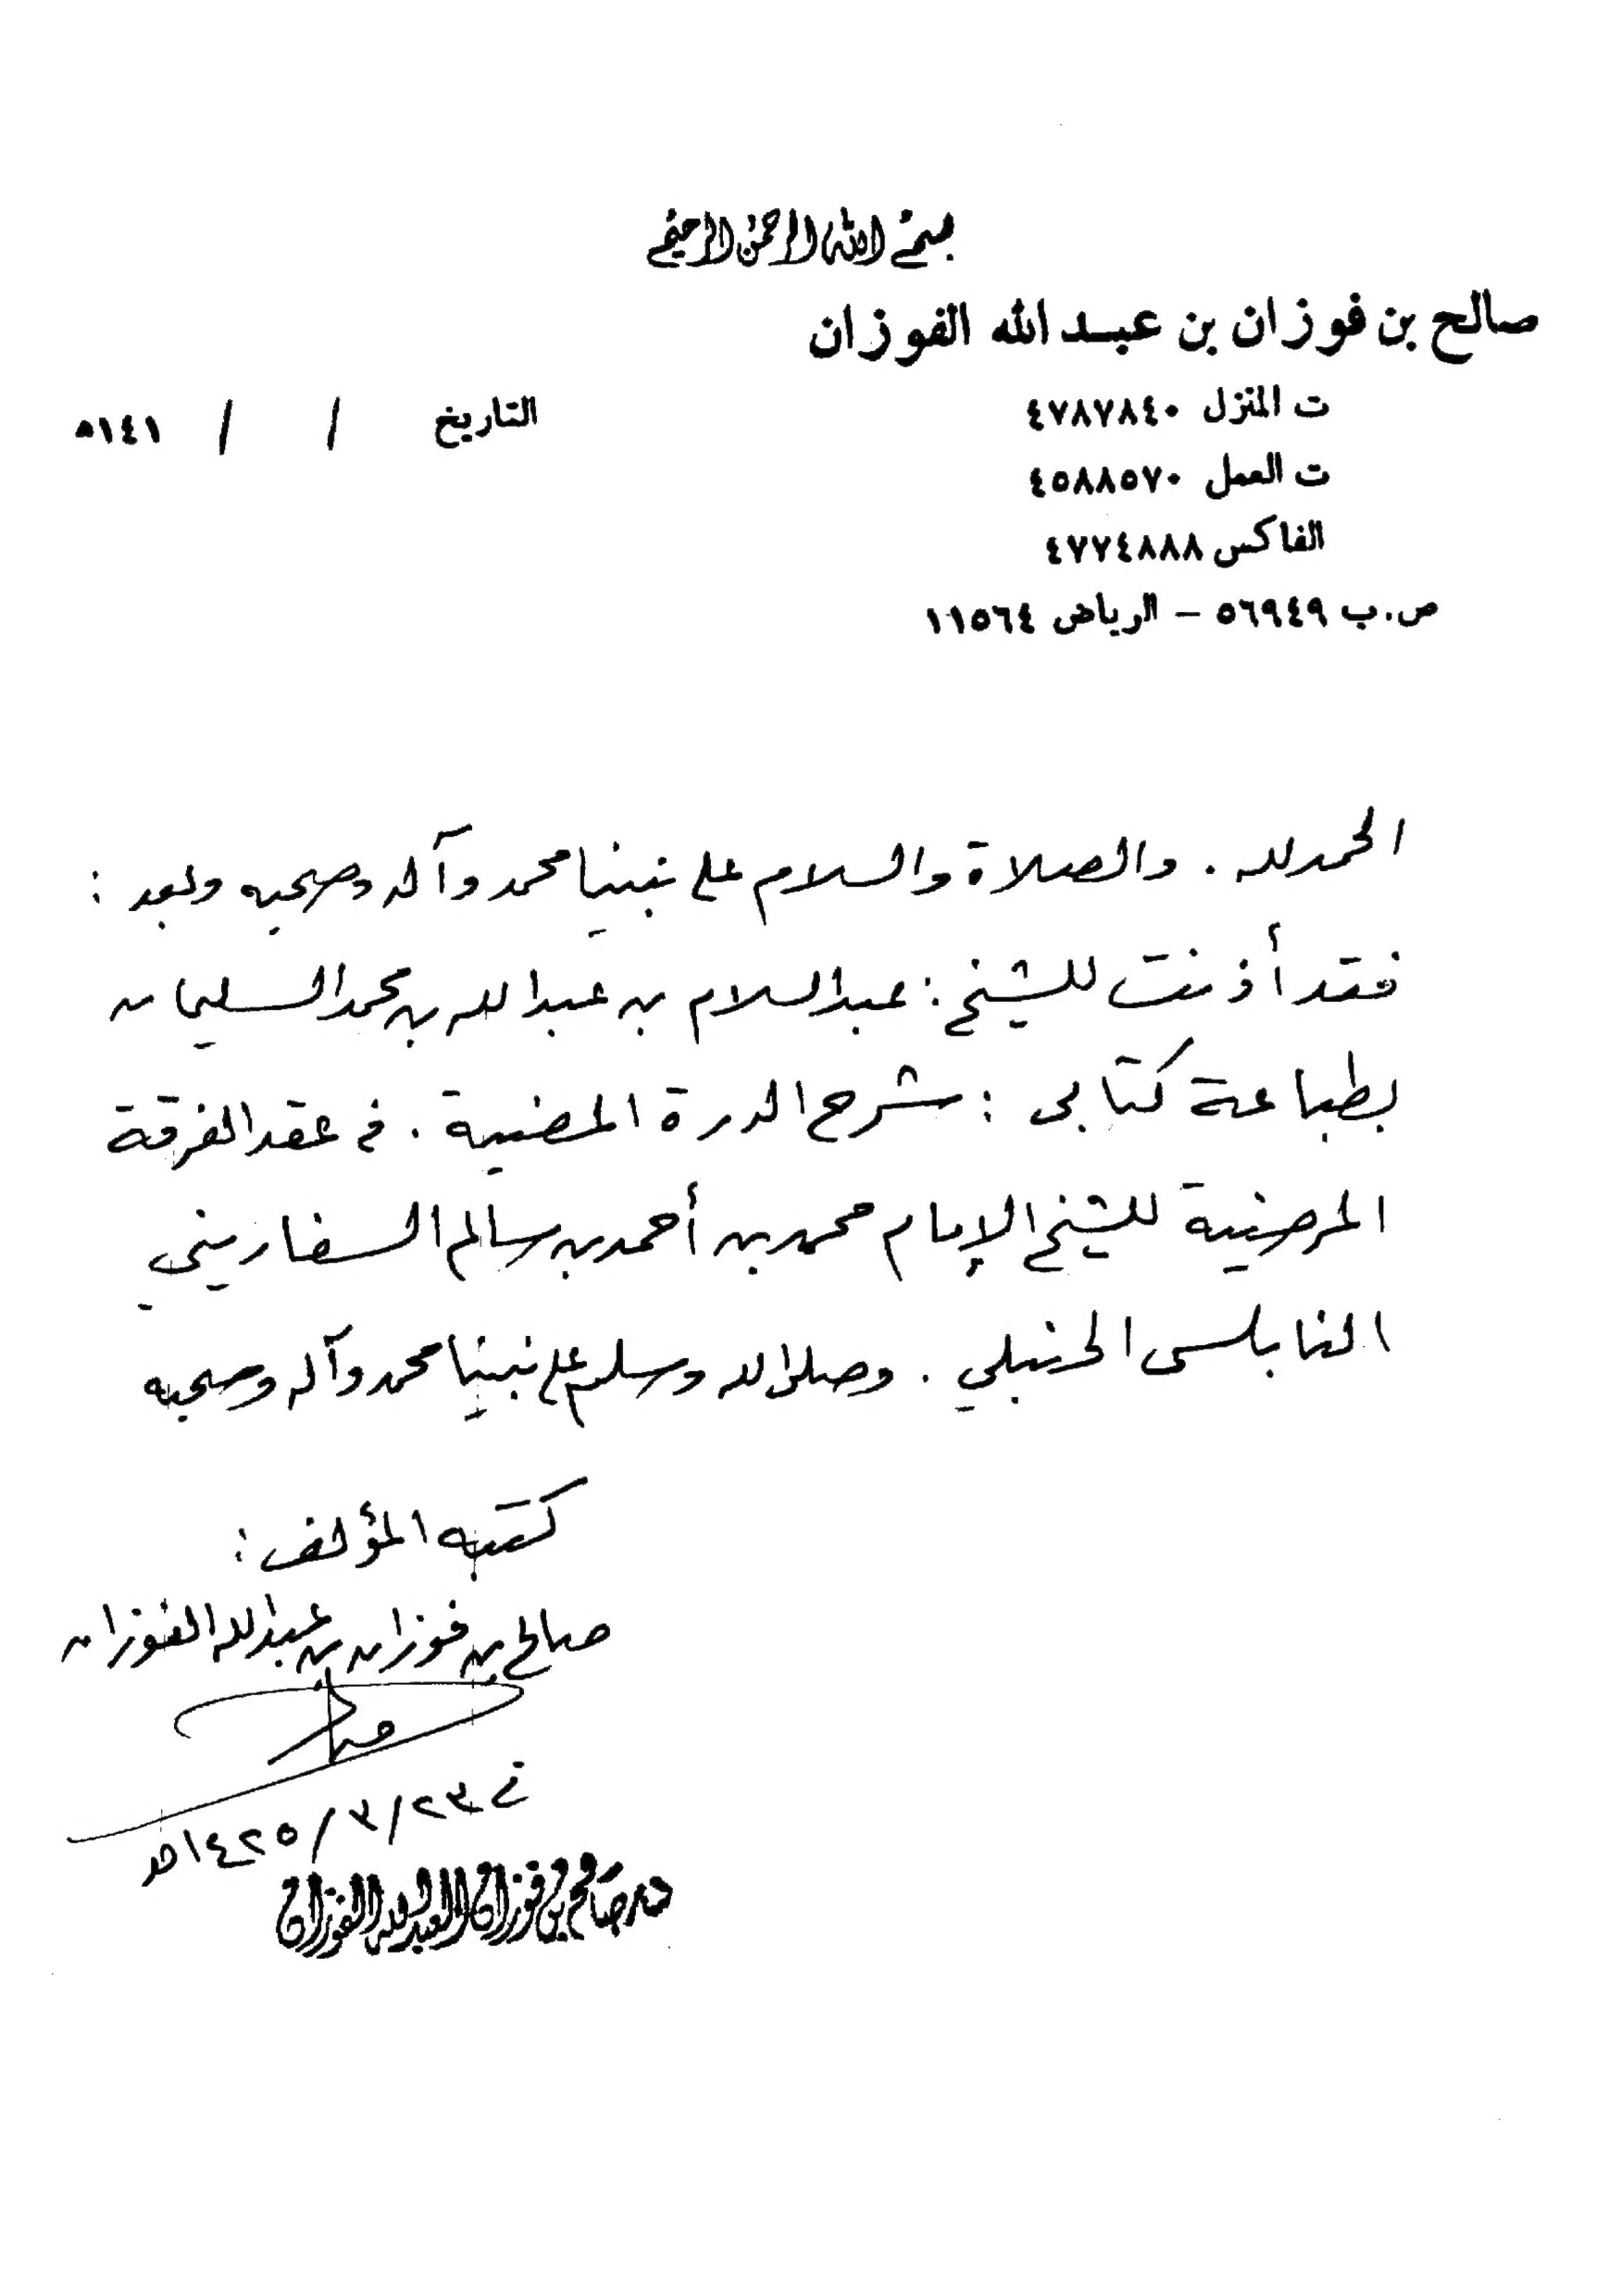 بسم الله الرحمن الرحيم
صالح بن فوزان بن عبد الله الفوزان
ت المنزل ٤٧٨٧٨٤٠
التاريخ / / ١٤١هـ
ت العمل ٤٥٨٨٥٧٠
الفاكس ٤٧٧٤٨٨٨
ص.ب ٥٦٩٤٩ – الرياض ١١٥٦٤
الحمد لله . والصلاة والسلام على نبينا محمد وآله وصحبه وبعد :
فقد أذنت للشيخ : عبد السلام بن عبد الله بن محمد السليمان
بطباعة كتابي : شرح الدرة المضية . في عقد الفرقة
المرضية للشيخ الإمام محمد بن أحمد بن سالم السفاريني
النابلسي الحنبلي . وصلى الله وسلم على نبينا محمد وآله وصحبه
كتبه المؤلف :
صالح بن فوزان بن عبد الله الفوزان
في ٢٣/٣/١٤٢٥هـ
صالح بن فوزان العبد الله الفوزان